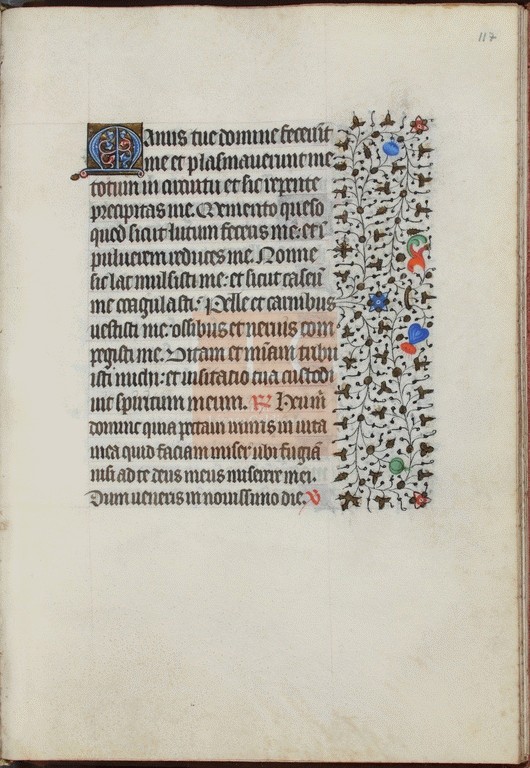 117
Manus tue domine fecerūt
me et plasmauerunt me
totum in circuitu et sic repente
precipitas me. Memento queso
quod sicut lutum feceris me: et ī
puluerem reduces me. Nonne
sic lac mulsisti me: et sicut caseū
me coagulasti. Pelle et carnibus
uestisti me: ossibus et neruis com
pegisti me. Vitam et mīam tribu
isti michi: et uisitacio tua custodi
uit spiritum meum. R Heu m̄
domine quia peccaui nimis in uita
mea quid faciam miser ubi fugiā
nisi ad te deus meus miserere mei.
Dum ueneris in nouissimo die. V